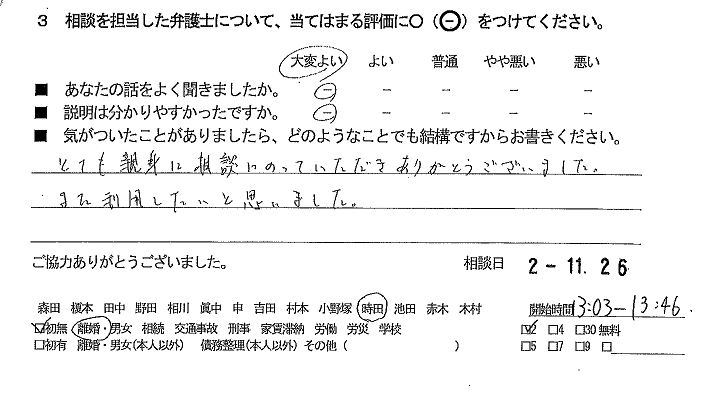 3 相談を担当した弁護士について、当てはまる評価に○(㊀)をつけてください。
大変よい よい 普通 やや悪い 悪い
■ あなたの話をよく聞きましたか。 － － － － －
■ 説明は分かりやすかったですか。 － － － － －
■ 気がついたことがありましたら、どのようなことでも結構ですからお書きください。
とても親身に相談にのっていただきありがとうございました。
また利用したいと思いました。
ご協力ありがとうございました。 相談日 2-11.26
森田 榎本 田中 野田 相川 眞中 申 吉田 村本 小野塚 時田 池田 赤木 木村 開始時間 13:03-13:46
☑初無 離婚・男女 相続 交通事故 刑事 家賃滞納 労働 労災 学校 ☑2 □4 □30 無料
□初有 離婚・男女(本人以外) 債務整理(本人以外) その他( ) □5 □7 □9 □